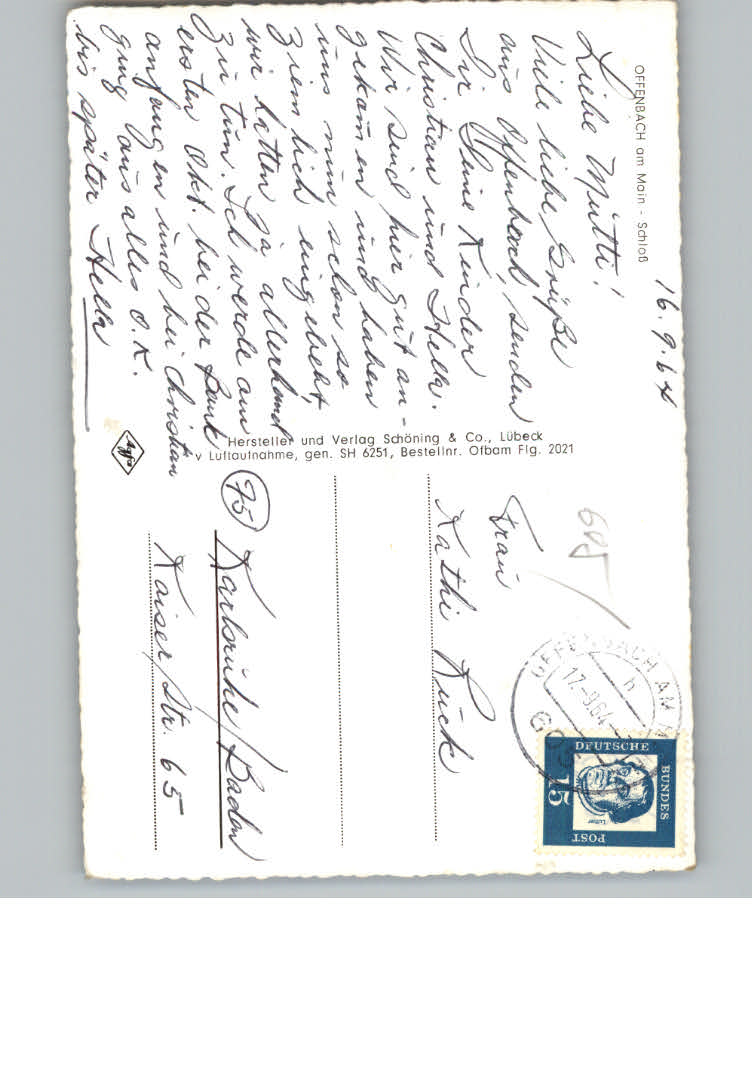 OFFENBACH am Main - Schloß
16.9.64
Liebe Mutti!
Viele liebe Grüße
aus Offenbach senden
Dir Deine Kinder
Christian und Hella.
Wir sind hier gut an-
gekommen und haben
uns nun schon so
ziemlich eingelebt,
wir hatten ja allerhand
zu tun. Ich werde am
ersten Okt. bei der Bank
anfangen und bei Christian
ging aus alles o.K.
bis später Hella
Agfa
Hersteller und Verlag Schöning & Co., Lübeck
v Luftaufnahme, gen. SH 6251, Bestellnr. Ofbam Flg. 2021
605
OFFENBACH AM
17.-9.64
h
605
DEUTSCHE
BUNDES
POST
15
Luther
Frau
Kathi Rück
75 Karlsruhe/Baden
Kaiserstr. 65